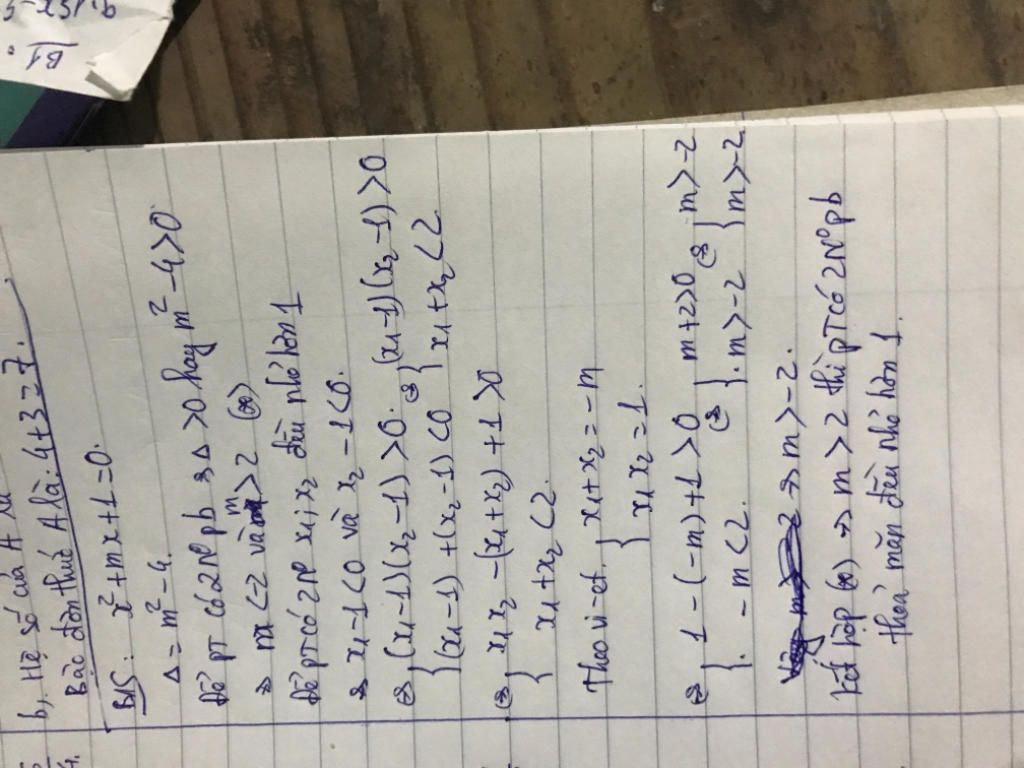 b), Hệ số của A là
Bậc đơn thức A là: 4+3=7.
B15: x²+mx+1=0.
Δ = m²-4.
Để PT có 2N⁰ pb ⇒ Δ >0 hay m²-4>0
⇒ m <-2 và m >2 (∞)
Để PT có 2N⁰ x₁; x₂ đều nhỏ hơn 1
⇒ x₁-1<0 và x₂-1<0.
⇔ { (x₁-1)(x₂-1)>0. ⇔ { (x₁-1)(x₂-1)>0
(x₁-1)+(x₂-1)<0 x₁+x₂<2
⇔ { x₁x₂-(x₁+x₂)+1>0
x₁+x₂<2.
Theo vi-et. { x₁+x₂=-m
x₁x₂=1.
⇔ { 1-(-m)+1>0 ⇔ { m+2>0 ⇔ { m>-2
. -m<2. . m>-2 m>-2
⇒ m>-2.
kết hợp (∞) → m>2 thì PT có 2N⁰ pb
thoả mãn đều nhỏ hơn 1.
B1: